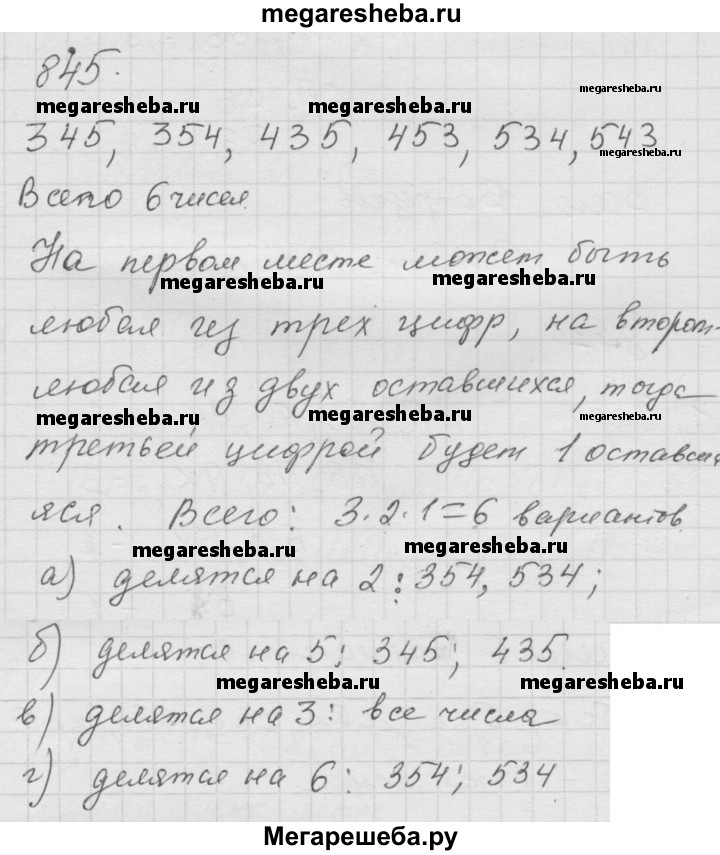 megaresheba.ru
845.
megaresheba.ru megaresheba.ru megaresheba.ru
345, 354, 435, 453, 534, 543
megaresheba.ru
Всего 6 чисел.
На первом месте может быть
megaresheba.ru megaresheba.ru
любая из трех цифр, на втором-
любая из двух оставшихся, тогда
megaresheba.ru megaresheba.ru megaresheba.ru
третьей цифрой будет 1 оставш
яся. Всего: 3·2·1=6 вариантов.
megaresheba.ru megaresheba.ru
а) делятся на 2: 354, 534;
б) делятся на 5: 345; 435.
megaresheba.ru megaresheba.ru
в) делятся на 3: все числа
г) делятся на 6: 354; 534
Мегарешеба.ру